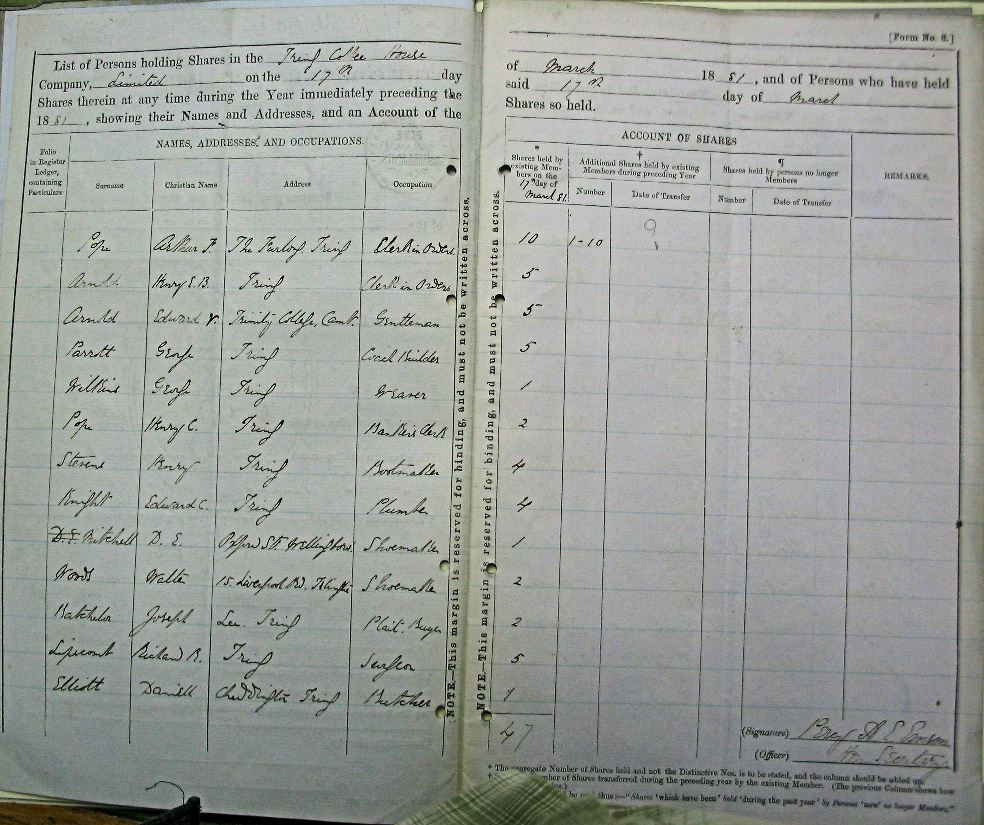 List of Persons holding Shares in the Tring Coffee House
Company, Limited on the 17th day
Shares therein at any time during the Year immediately preceding the
1881, showing their Names and Addresses, and an Account of the
Folio in Register Ledger, containing Particulars
NAMES, ADDRESSES, AND OCCUPATIONS.
Surname Christian Name Address Occupation
Pope Arthur F. Tring Clerk in Orders
Arnold Henry E. B. Tring Clerk in Orders
Arnold Edward V. Trinity College, Camb. Gentleman
Parrott George Tring Coach Builder
Wilkins George Tring Weaver
Pope Henry C. Tring Bankers Clerk
Stevens Henry Tring Bootmaker
Knight Edward C. Tring Plumber
D. E. Mitchell D. E. Shoemaker
Woods Walter 15. Liverpool Rd. Islington Shoemaker
Batchelor Joseph Tring Plait. Buyer
Lipscomb Richard R. Tring Surgeon
Elliott Daniell Cheddington Tring Butcher
NOTE.—This margin is reserved for binding, and must not be written across.
[Form No. 3.]
of March 1881, and of Persons who have held
said 17th day of March
Shares so held.
ACCOUNT OF SHARES
* Shares held by existing Members on the 17th day of March 81.
† Additional Shares held by existing Members during preceding Year
¶ Shares held by persons no longer Members
REMARKS.
Number Date of Transfer Number Date of Transfer
10 1-10 9
5
5
5
1
2
4
4
1
2
2
5
1
47
NOTE.—This margin is reserved for binding, and must not be written across.
(Signature)
(Officer) Hon Secretary
* The aggregate Number of Shares held and not the Distinctive Nos. is to be stated, and the column should be added up.
Number of Shares transferred during the preceding year by the existing Member. (The previous Column shews how
be thus:—"Shares 'which have been' held 'during the past year' by Persons 'now' no longer Members."